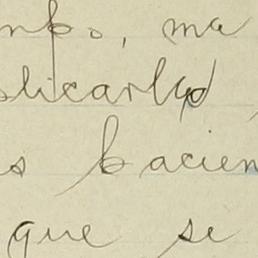 mpo, ma
plicarlas
s hacien
que se